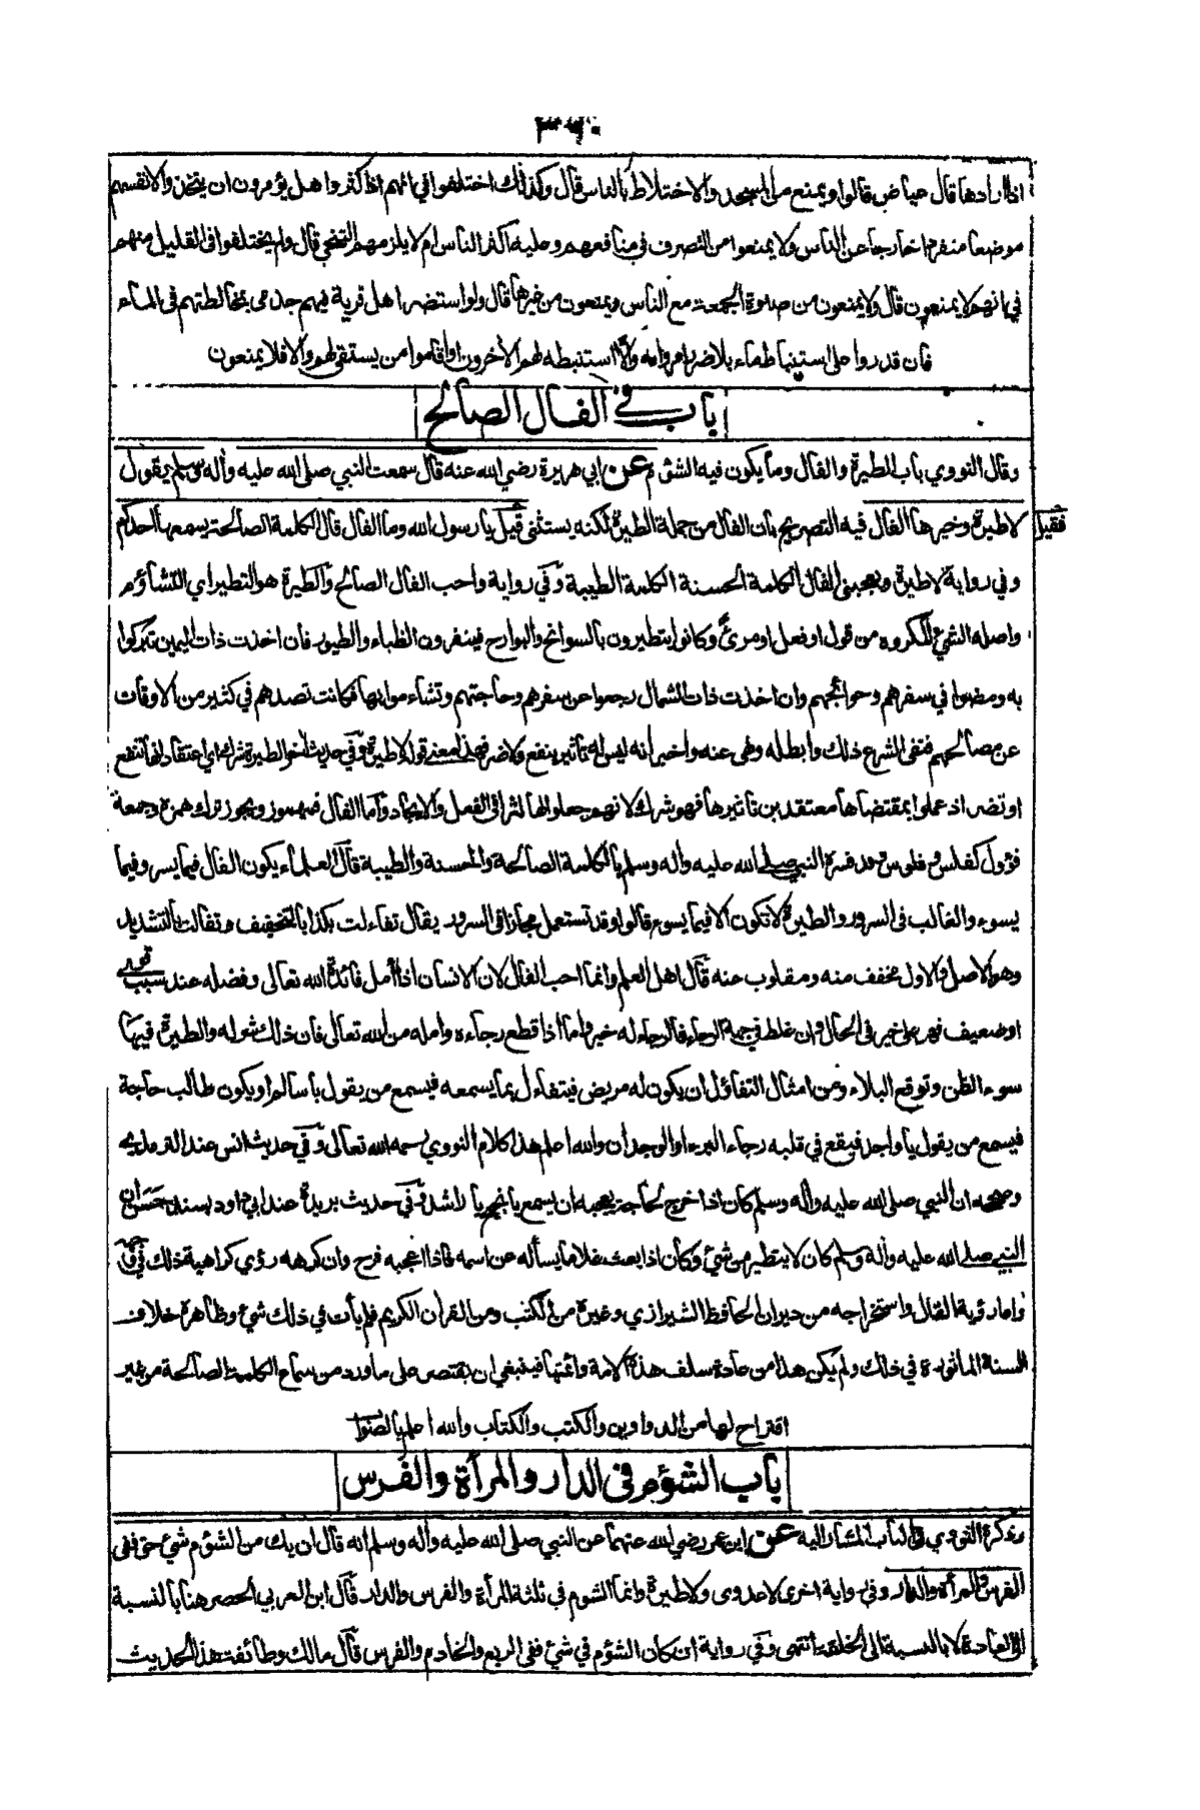 ٣٦٠
اذا ارادها قال عياض قالوا ويمنع من المسجد والاختلاط بالناس قال وكذلك اختلفوا في انهم اذا كثروا هل يؤمرون ان يتخذوا لانفسهم
موضعا منفردا خارجا عن الناس ولا يمنعوا من التصرف في منافعهم وعليه اكثر الناس ام لا يلزمهم التنحي قال ولم يختلفوا في القليل منهم
في انهم لا يمنعون قال ولا يمنعون من صلوة الجمعة مع الناس ويمنعون من غيرها قال ولو استضر اهل قرية فيهم جذمى بمخالطتهم في الماء
فان قدروا على استنباط ماء بلا ضرر امروا به والا استنبطه لهم الآخرون او اقاموا من يستقي لهم والا فلا يمنعون
باب في الفال الصالح
وقال النووي باب الطيرة والفال وما يكون فيه الشؤم عن ابي هريرة رضي الله عنه قال سمعت النبي صلى الله عليه وأله وسلم يقول
لا طيرة وخيرها الفال فيه التصريح بان الفال من جملة الطيرة لكنه يستثنى قيل يا رسول الله وما الفال قال الكلمة الصالحة يسمعها احدكم
فقيل
وفي رواية لا طيرة ويعجبني الفال الكلمة الحسنة الكلمة الطيبة وفي رواية واحب الفال الصالح والطيرة هو التطير اي التشاؤم
واصله الشئ المكروه من قول او فعل او مرئ وكانوا يتطيرون بالسوانح والبوارح فينفرون الظباء والطيور فان اخذت ذات اليمين تبركوا
به ومضوا في سفرهم وحوائجهم وان اخذت ذات الشمال رجعوا عن سفرهم وحاجتهم وتشاءموا بها فكانت تصدهم في كثير من الاوقات
عن مصالحهم فنفى الشرع ذلك وابطله ونهى عنه واخبر انه ليس له تأثير بنفع ولا ضر فهذا معنى قوله لا طيرة وفي حديث آخر الطيرة شرك اي اعتقاد انها تنفع
او تضر اذ عملوا بمقتضاها معتقدين تاثيرها فهو شرك لانهم جعلوا لها اثرا في الفعل والايجاد واما الفال فمهموز ويجوز ترك همزه وجمعه
فؤول كفلس وفلوس وقد فسره النبي صلى الله عليه واله وسلم بالكلمة الصالحة والحسنة والطيبة قال العلماء يكون الفال فيما يسر وفيما
يسوء والغالب في السرور والطيرة لا تكون الا فيما يسوء قالوا وقد تستعمل مجازا في السرور يقال تفاءلت بكذا بالتخفيف وتفالت بالتشديد
وهو الاصل والاول مخفف منه ومقلوب عنه قال اهل العلم وانما احب الفال لان الانسان اذا أمل فائدة الله تعالى وفضله عند سبب قوي
او ضعيف فهو على خير في الحال وان غلط في جهة الرجاء فالرجاء له خير واما اذا قطع رجاءه وامله من الله تعالى فان ذلك شر له والطيرة فيها
سوء الظن وتوقع البلاء ومن امثال التفاؤل ان يكون له مريض فيتفاءل بما يسمعه فيسمع من يقول يا سالم او يكون طالب حاجة
فيسمع من يقول يا واجد فيقع في قلبه رجاء البرء او الوجدان والله اعلم هذا كلام النووي رحمه الله تعالى وفي حديث انس عند الترمذي
وصححه ان النبي صلى الله عليه وأله وسلم كان اذا خرج لحاجة يعجبه ان يسمع يا نجيح يا راشد وفي حديث بريدة عند ابي داود بسند حسن ان
النبي صلى الله عليه وأله وسلم كان لا يتطير من شئ وكان اذا بعث غلاما يسأله عن اسمه فاذا اعجبه فرح وان كرهه رؤي كراهية ذلك في
واما رؤية الفال واستخراجه من ديوان الحافظ الشيرازي وغيره من الكتب ومن القران الكريم فلم يأت في ذلك شئ وظاهره خلاف
السنة الماثورة في ذلك ولم يكن هذا من عادة سلف هذه الامة وائمتها فينبغي ان يقتصر على ما ورد من سماع الكلمة الصالحة من غير
اقتراح لها من الدواوين والكتب والكتاب والله اعلم بالصواب
باب الشؤم في الدار والمرأة والفرس
وذكره النووي في الباب المشار اليه عن ابن عمر رضي الله عنهما عن النبي صلى الله عليه وأله وسلم انه قال ان يك من الشؤم شئ حق ففي
الفرس والمرأة والدار وفي رواية اخرى لا عدوى ولا طيرة وانما الشوم في ثلثة المرأة والفرس والدار قال ابن العربي الحصر هنا بالنسبة
الى العادة لا بالنسبة الى الخلقة انتهى وفي رواية ان كان الشؤم في شئ ففي الربع والخادم والفرس قال مالك وطائفة هذا الحديث